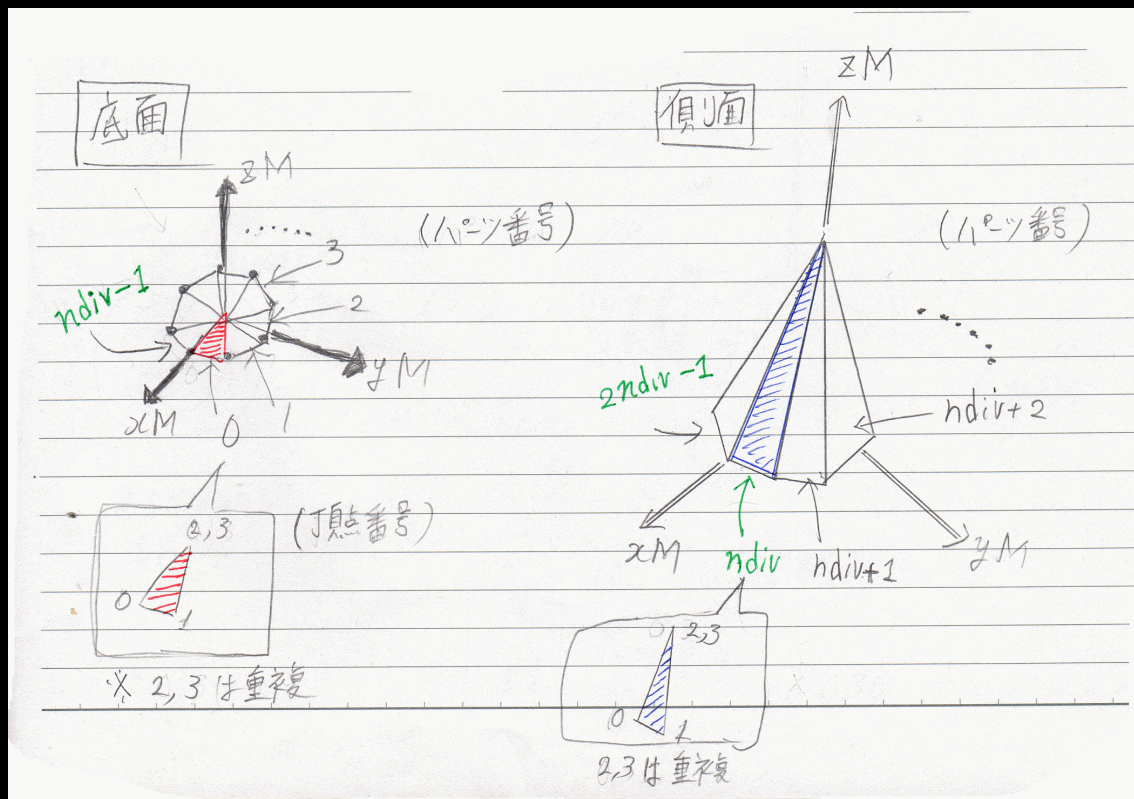 底面
zM
(パーツ番号)
3
ndiv-1
2
yM
xM
0
1
(頂点番号)
2,3
0
1
※ 2,3は重複
側面
zM
(パーツ番号)
2ndiv-1
ndiv+2
xM
ndiv
ndiv+1
yM
2,3
0
1
2,3は重複